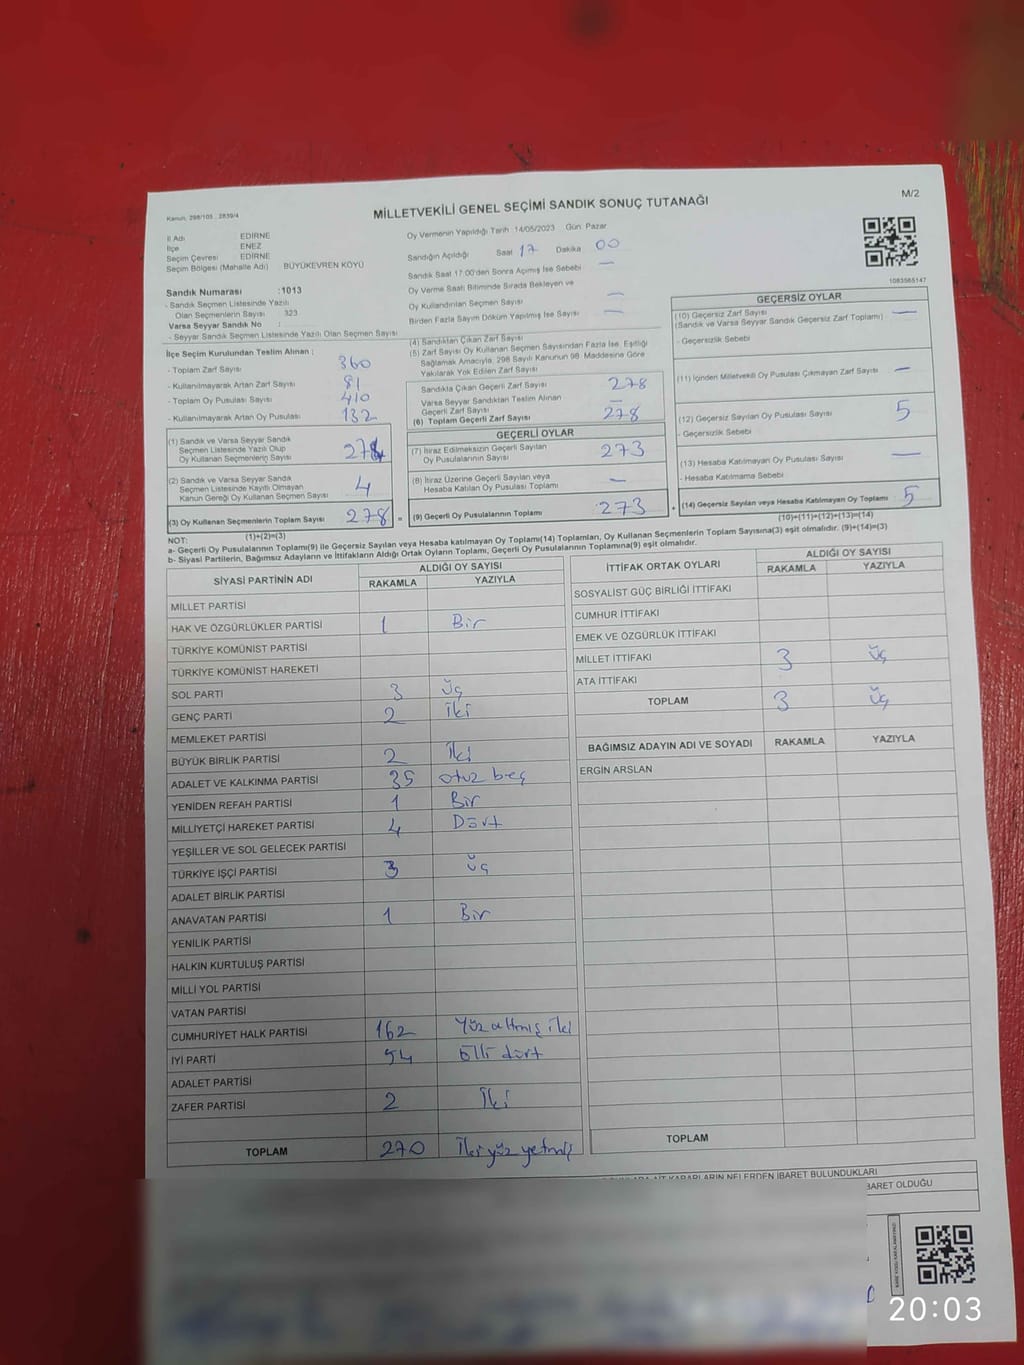 M/2
Kanun, 298/105 , 2839/4
MİLLETVEKİLİ GENEL SEÇİMİ SANDIK SONUÇ TUTANAĞI
İl Adı EDİRNE
İlçe ENEZ
Seçim Çevresi EDİRNE
Seçim Bölgesi (Mahalle Adı) BÜYÜKEVREN KÖYÜ
Sandık Numarası :1013
- Sandık Seçmen Listesinde Yazılı
Olan Seçmenlerin Sayısı 323
Varsa Seyyar Sandık No :
- Seyyar Sandık Seçmen Listesinde Yazılı Olan Seçmen Sayısı
Oy Vermenin Yapıldığı Tarih 14/05/2023 Gün Pazar
Sandığın Açıldığı Saat 17 Dakika 00
Sandık Saat 17:00'den Sonra Açımış İse Sebebi —
Oy Verme Saati Bitiminde Sırada Bekleyen ve
Oy Kullandırılan Seçmen Sayısı —
Birden Fazla Sayım Döküm Yapılmış İse Sayısı —
1083565147
İlçe Seçim Kurulundan Teslim Alınan ;
- Toplam Zarf Sayısı 360
- Kullanılmayarak Artan Zarf Sayısı 81
- Toplam Oy Pusulası Sayısı 410
- Kullanılmayarak Artan Oy Pusulası 132
(1) Sandık ve Varsa Seyyar Sandık
Seçmen Listesinde Yazılı Olup
Oy Kullanan Seçmenlerin Sayısı
(2) Sandık ve Varsa Seyyar Sandık
Seçmen Listesinde Kayıtlı Olmayan
Kanun Gereği Oy Kullanan Seçmen Sayısı 4
(3) Oy Kullanan Seçmenlerin Toplam Sayısı 278 =
(1)+(2)=(3)
(4) Sandıktan Çıkan Zarf Sayısı
(5) Zarf Sayısı Oy Kullanan Seçmen Sayısından Fazla İse, Eşitliği
Sağlamak Amacıyla, 298 Sayılı Kanunun 98. Maddesine Göre
Yakılarak Yok Edilen Zarf Sayısı
Sandıkta Çıkan Geçerli Zarf Sayısı 278
Varsa Seyyar Sandıktan Teslim Alınan
Geçerli Zarf Sayısı —
(6) Toplam Geçerli Zarf Sayısı 278
GEÇERLİ OYLAR
(7) İtiraz Edilmeksizin Geçerli Sayılan
Oy Pusulalarının Sayısı 273
(8) İtiraz Üzerine Geçerli Sayılan veya
Hesaba Katılan Oy Pusulası Toplamı —
(9) Geçerli Oy Pusulalarının Toplamı 273 +
GEÇERSİZ OYLAR
(10) Geçersiz Zarf Sayısı —
(Sandık ve Varsa Seyyar Sandık Geçersiz Zarf Toplamı)
- Geçersizlik Sebebi
(11) İçinden Milletvekili Oy Pusulası Çıkmayan Zarf Sayısı —
(12) Geçersiz Sayılan Oy Pusulası Sayısı 5
- Geçersizlik Sebebi
(13) Hesaba Katılmayan Oy Pusulası Sayısı —
- Hesaba Katılmama Sebebi
(14) Geçersiz Sayılan veya Hesaba Katılmayan Oy Toplamı 5
(10)+(11)+(12)+(13)=(14)
NOT:
a- Geçerli Oy Pusulalarının Toplamı(9) ile Geçersiz Sayılan veya Hesaba katılmayan Oy Toplamı(14) Toplamları, Oy Kullanan Seçmenlerin Toplam Sayısına(3) eşit olmalıdır. (9)+(14)=(3)
b- Siyasi Partilerin, Bağımsız Adayların ve İttifakların Aldığı Ortak Oyların Toplamı, Geçerli Oy Pusulalarının Toplamına(9) eşit olmalıdır.
SİYASİ PARTİNİN ADI ALDIĞI OY SAYISI
RAKAMLA YAZIYLA
MİLLET PARTİSİ
HAK VE ÖZGÜRLÜKLER PARTİSİ 1 Bir
TÜRKİYE KOMÜNİST PARTİSİ
TÜRKİYE KOMÜNİST HAREKETİ
SOL PARTİ 3 Üç
GENÇ PARTİ 2 İki
MEMLEKET PARTİSİ
BÜYÜK BİRLİK PARTİSİ 2 İki
ADALET VE KALKINMA PARTİSİ 35 otuz beş
YENİDEN REFAH PARTİSİ 1 Bir
MİLLİYETÇİ HAREKET PARTİSİ 4 Dört
YEŞİLLER VE SOL GELECEK PARTİSİ
TÜRKİYE İŞÇİ PARTİSİ 3 Üç
ADALET BİRLİK PARTİSİ
ANAVATAN PARTİSİ 1 Bir
YENİLİK PARTİSİ
HALKIN KURTULUŞ PARTİSİ
MİLLİ YOL PARTİSİ
VATAN PARTİSİ
CUMHURİYET HALK PARTİSİ 162 Yüz altmış iki
İYİ PARTİ 54 Elli dört
ADALET PARTİSİ
ZAFER PARTİSİ 2 İki
TOPLAM 270 İki yüz yetmiş
İTTİFAK ORTAK OYLARI ALDIĞI OY SAYISI
RAKAMLA YAZIYLA
SOSYALİST GÜÇ BİRLİĞİ İTTİFAKI
CUMHUR İTTİFAKI
EMEK VE ÖZGÜRLÜK İTTİFAKI
MİLLET İTTİFAKI 3 Üç
ATA İTTİFAKI
TOPLAM 3 Üç
BAĞIMSIZ ADAYIN ADI VE SOYADI RAKAMLA YAZIYLA
ERGİN ARSLAN
TOPLAM
KARARLARIN NELERDEN İBARET BULUNDUKLARI
BARET OLDUĞU
20:03